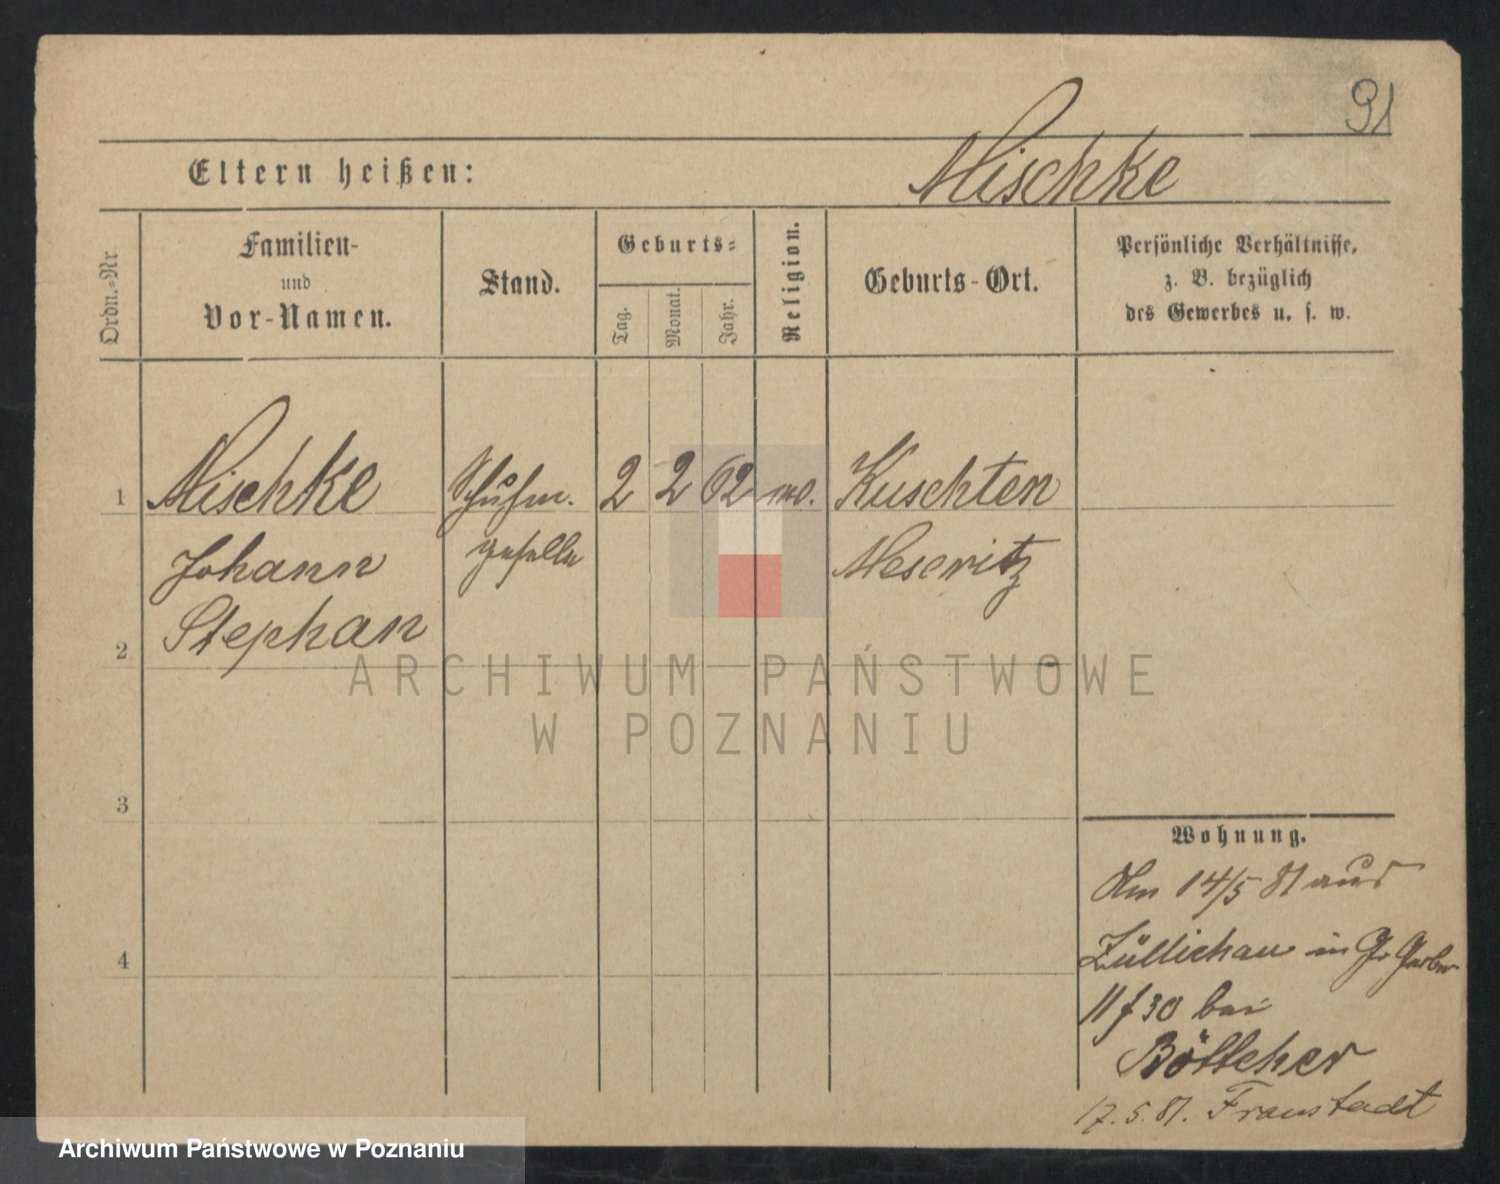 91
Eltern heißen:
Mischke
Ordn.-Nr
Familien-
und
Vor-Namen.
Stand.
Geburts-
Tag.
Monat.
Jahr.
Religion.
Geburts-Ort.
Persönliche Verhältnisse,
z. B. bezüglich
des Gewerbes u. s. w.
1 Mischke Schuhm. 2 2 62 Kuschten
Johann geselle Meseritz
Stephan
2
ARCHIWUM PAŃSTWOWE
W POZNANIU
3
Wohnung.
Am 14/5 81 aus
Züllichau in Gr Gerber
30 bei
4
Böttcher
17.5.81. Fraustadt
Archiwum Państwowe w Poznaniu